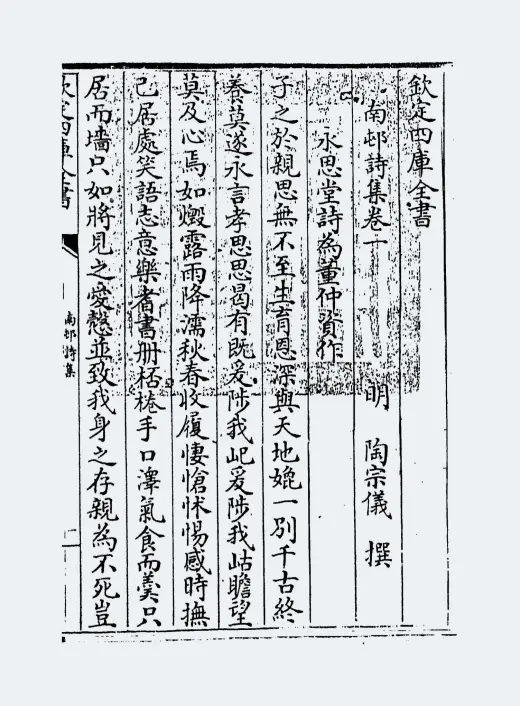 欽定四庫全書
南邨詩集卷一
明 陶宗儀 撰
永思堂詩為董仲貟作
子之於親思無不至生育恩深與天地媲一別千古終
養莫遂永言孝思思曷有既爰陟我屺爰陟我岵瞻望
莫及心焉如燬露雨降濡秋春收履悽愴怵惕感時撫
己居處笑語志意樂耆書册桮棬手口澤氣食而羮只
居而墻只如將見之愛慤並致我身之存親為不死豈
欽定四庫全書
南邨詩集